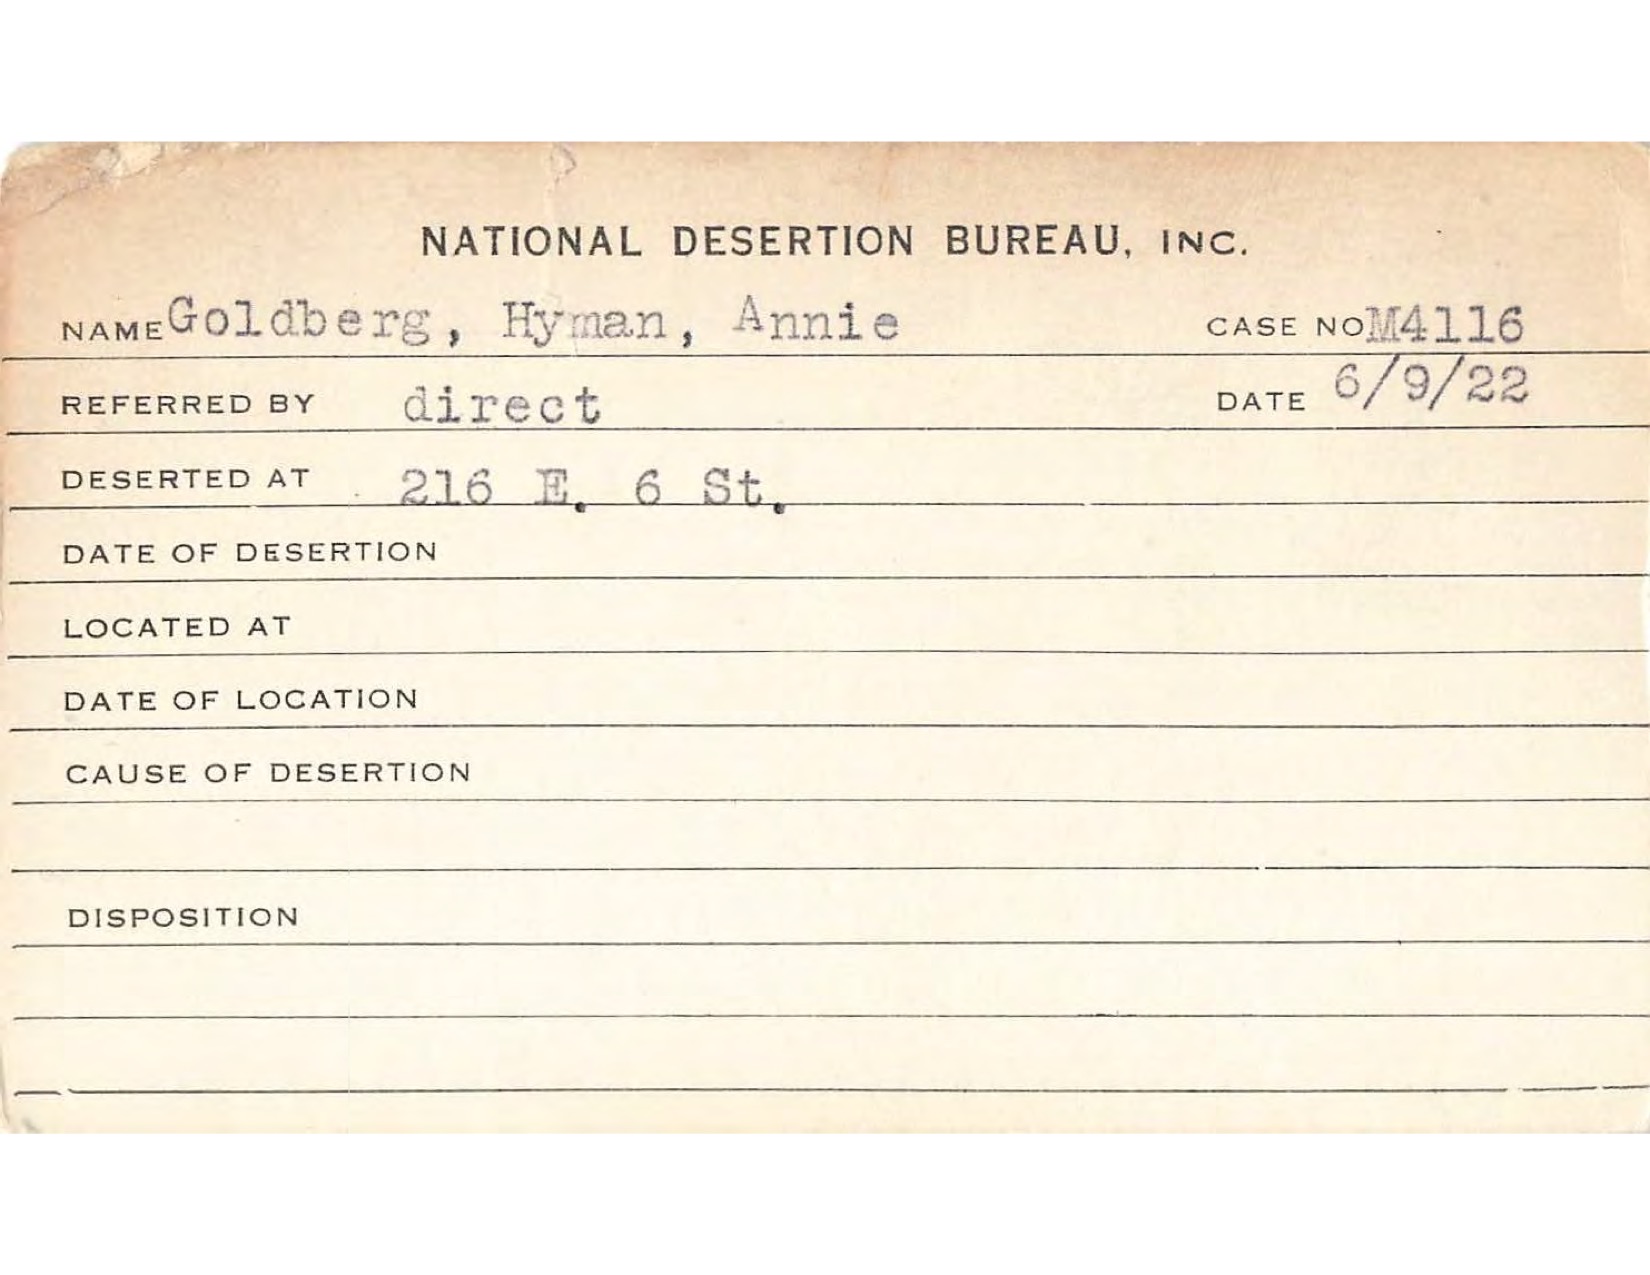 NATIONAL DESERTION BUREAU, INC.
NAME Goldberg, Hyman, Annie CASE NO M4116
REFERRED BY direct DATE 6/9/22
DESERTED AT 216 E. 6 St.
DATE OF DESERTION
LOCATED AT
DATE OF LOCATION
CAUSE OF DESERTION
DISPOSITION